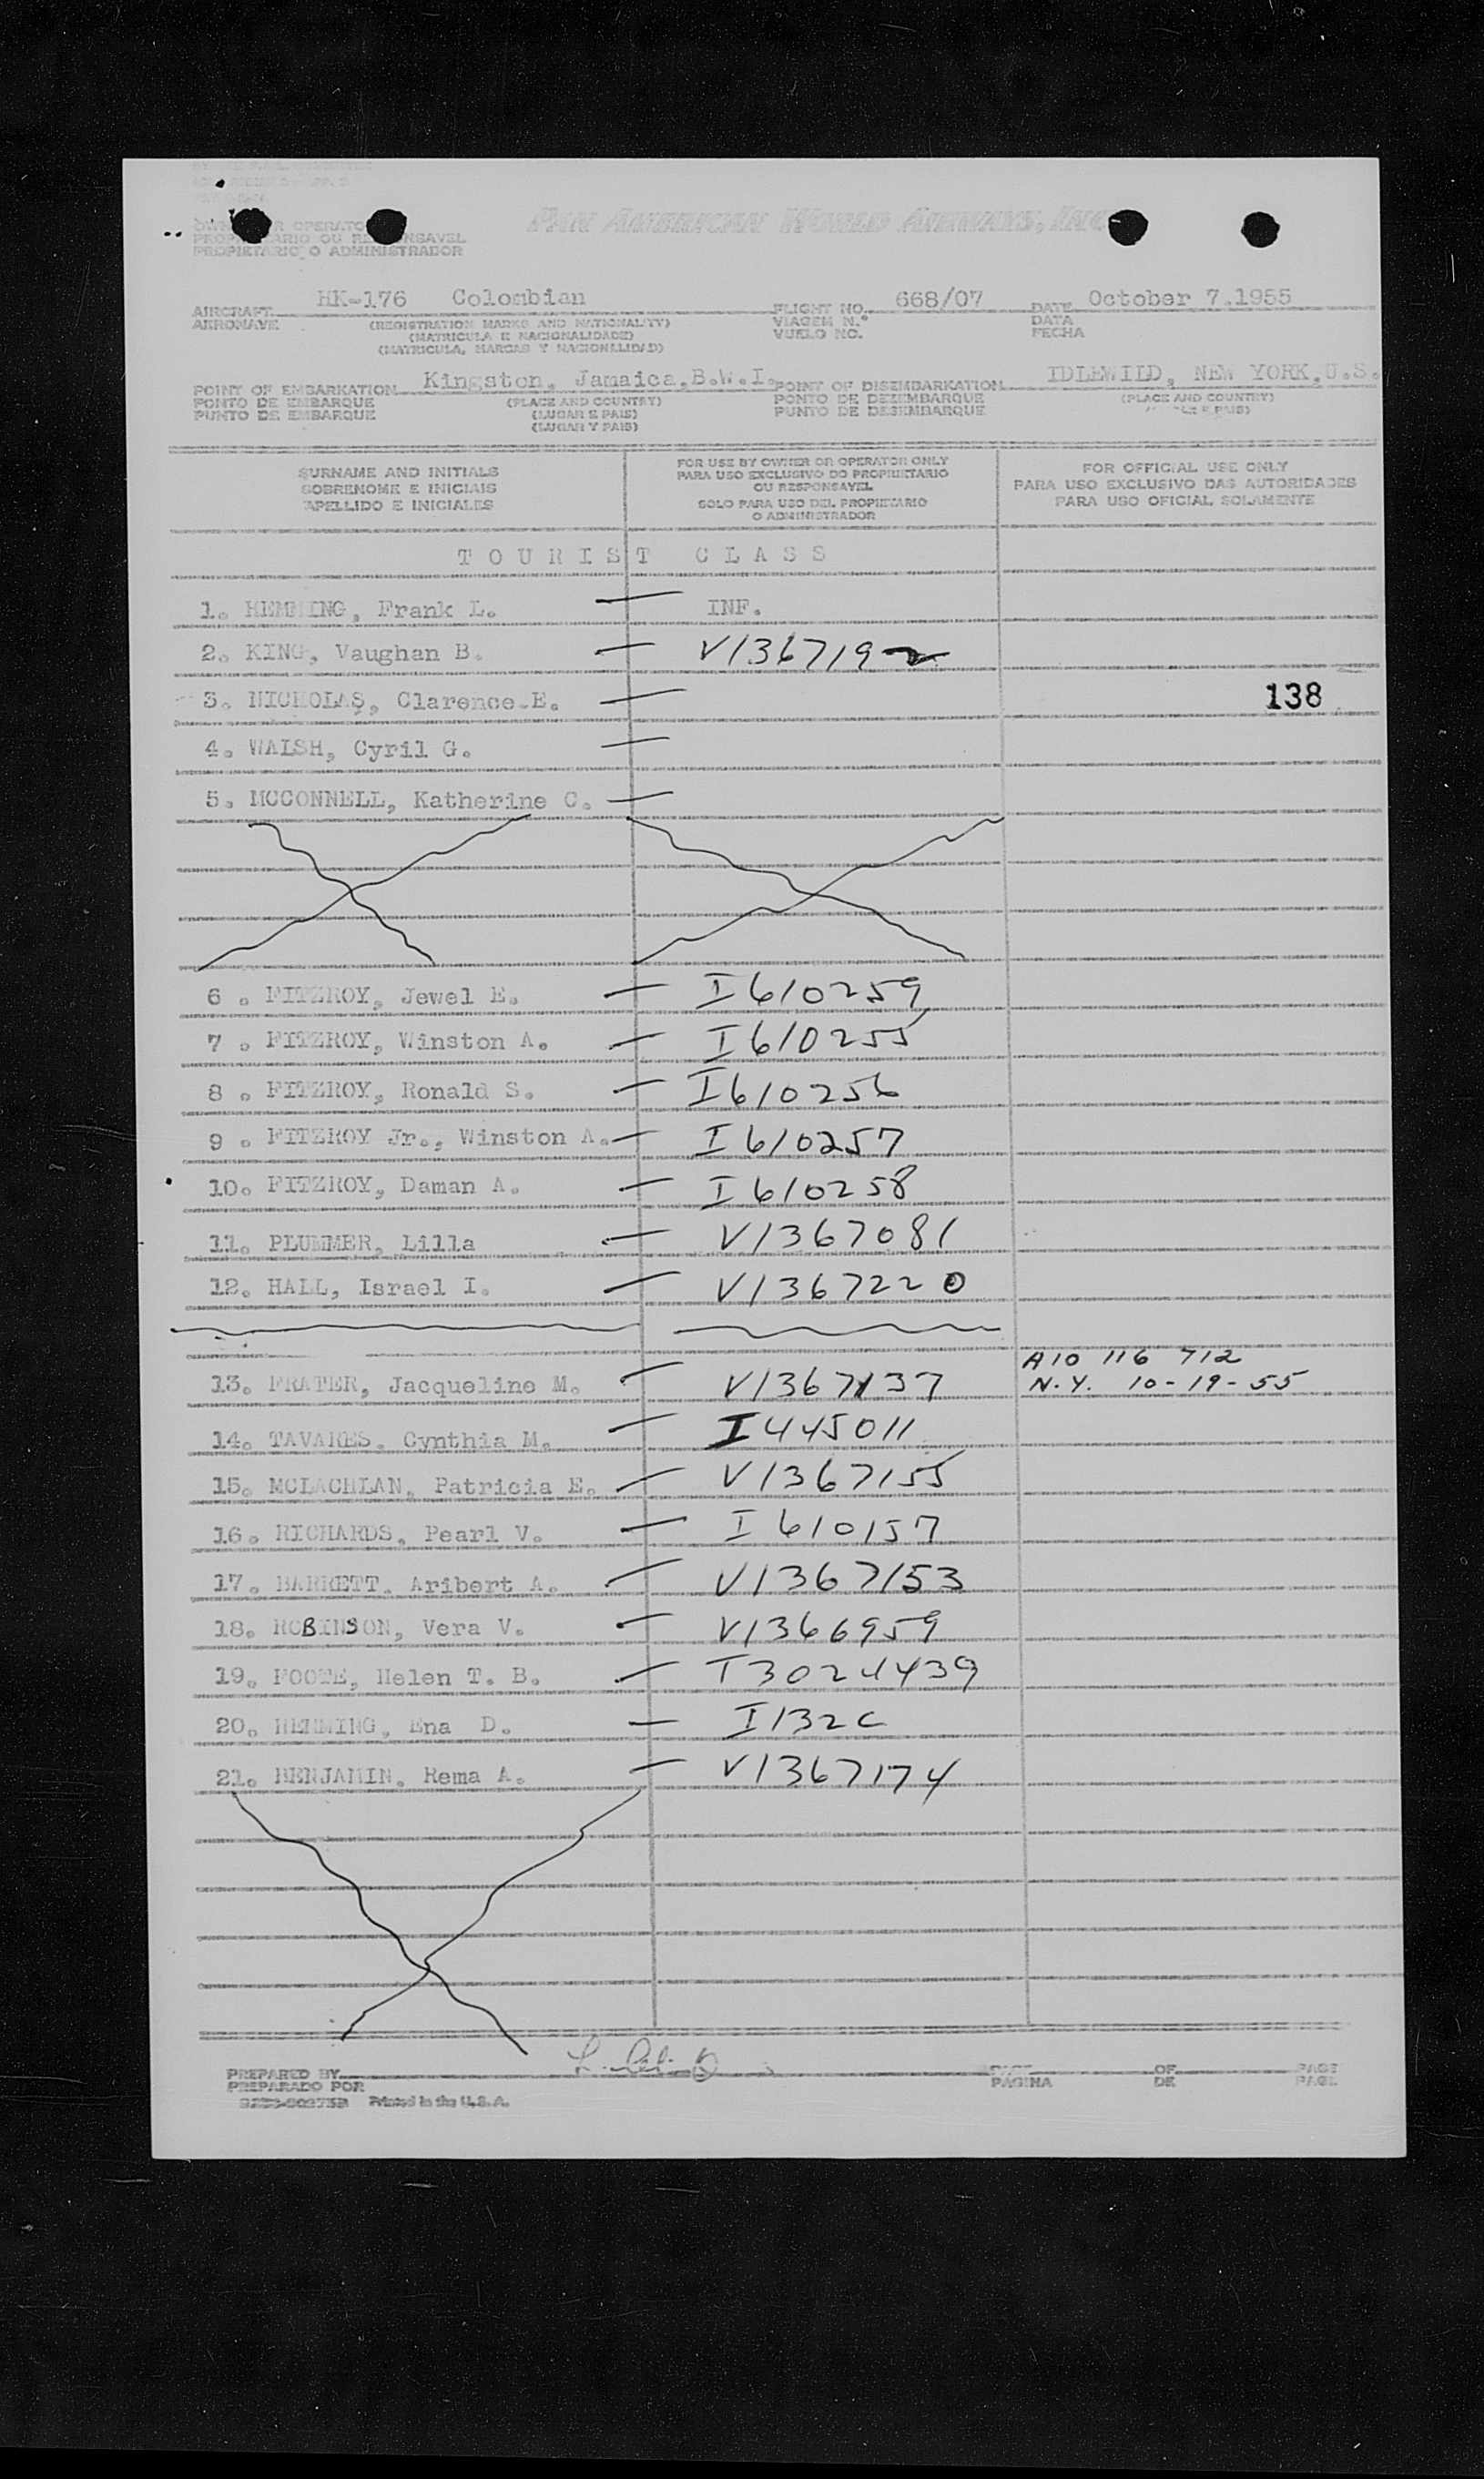 PAN AMERICAN WORLD AIRWAYS, INC
PROPIETARIO O ADMINISTRADOR
AIRCRAFT HK-176 Colombian FLIGHT NO. 668/07 DATE October 7.1955
AERONAVE (REGISTRATION MARKS AND NATIONALITY) VIAGEM N.º DATA
(MATRICULA E NACIONALIDADE) VUELO NO. FECHA
(MATRICULA, MARCAS Y NACIONALIDAD)
POINT OF EMBARKATION Kingston, Jamaica,B.W.I. POINT OF DISEMBARKATION IDLEWILD, NEW YORK,U.S.
PONTO DE EMBARQUE (PLACE AND COUNTRY) PONTO DE DEZEMBARQUE (PLACE AND COUNTRY)
PUNTO DE EMBARQUE (LUGAR E PAIS) PUNTO DE DESEMBARQUE
(LUGAR Y PAIS)
SURNAME AND INITIALS
SOBRENOME E INICIAIS
APELLIDO E INICIALES
FOR USE BY OWNER OR OPERATOR ONLY
PARA USO EXCLUSIVO DO PROPRIETARIO
OU RESPONSAVEL
SOLO PARA USO DEL PROPIETARIO
O ADMINISTRADOR
FOR OFFICIAL USE ONLY
PARA USO EXCLUSIVO DAS AUTORIDADES
PARA USO OFICIAL SOLAMENTE
TOURIST CLASS
1. HEMMING, Frank L. — INF.
2. KING, Vaughan B. — V1367192
3. NICHOLAS, Clarence.E. — 138
4. WALSH, Cyril G. —
5. MCCONNELL, Katherine C. —
6 . FITZROY, Jewel E. — I610259
7 . FITZROY, Winston A. — I610255
8 . FITZROY, Ronald S. — I610256
9 . FITZROY Jr., Winston A. — I610257
10. FITZROY, Daman A. — I610258
11. PLUMMER, Lilla — V1367081
12. HALL, Israel I. — V1367220
A10 116 712
13. FRATER, Jacqueline M. — V1367137 N.Y. 10-19-55
14. TAVARES. Cynthia M. — I445011
15. MCLACHLAN, Patricia E. — V1367155
16. RICHARDS, Pearl V. — I610157
17. BARRETT. Aribert A. — V1367153
18. ROBINSON, Vera V. — V1366959
19. FOOTE, Helen T. B. — T3024439
20. HEMMING, Ena D. — I132C
21. BENJAMIN. Rema A. — V1367174
PREPARED BY OF PAGE
PREPARADO POR PAGINA DE PAGE
Printed in the U.S.A.